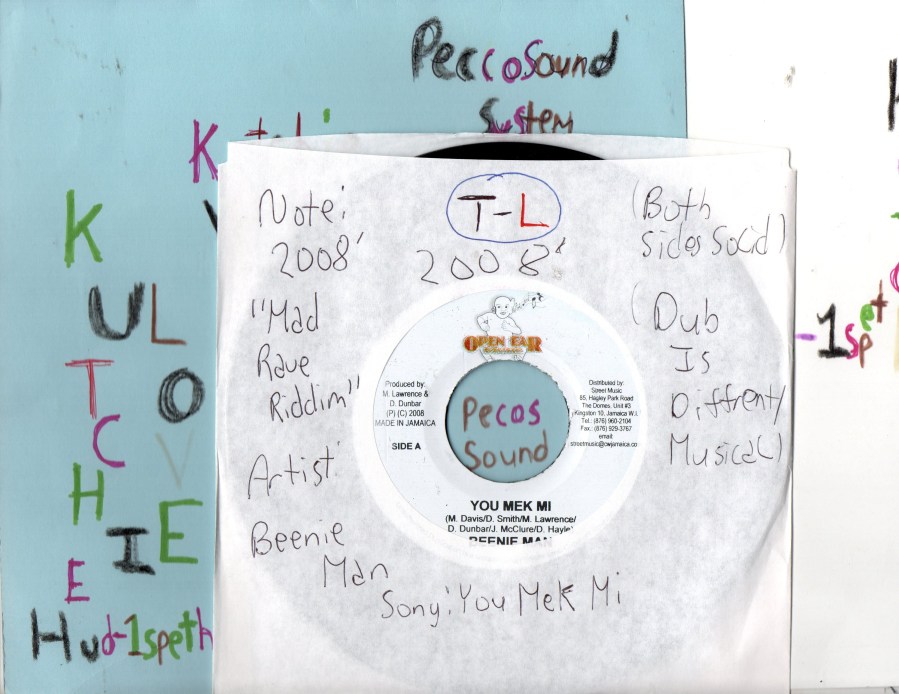 Peccosound
System
K
K
U L
T O
C V
H I E
E
Hud-1speth
-1spet
T-L
2008'
Note:
2008'
"Mad
Rave
Riddim"
Artist:
Beenie
Man
Song: You Mek Mi
(Both
sides Solid)
(Dub
Is
Diffrent/
Musical)
OPEN EAR
Produced by:
M. Lawrence &
D. Dunbar
(P) (C) 2008
MADE IN JAMAICA
SIDE A
Distributed by:
Street Music
85, Hagley Park Road
The Domes, Unit #3
Kingston 10, Jamaica W.I.
Tel.: (876) 960-2104
Fax.: (876) 929-3767
email:
streetmusic@cwjamaica.co
Pecos
Sound
YOU MEK MI
(M. Davis/D. Smith/M. Lawrence/
D. Dunbar/J. McClure/D. Hayle
BEENIE MAN